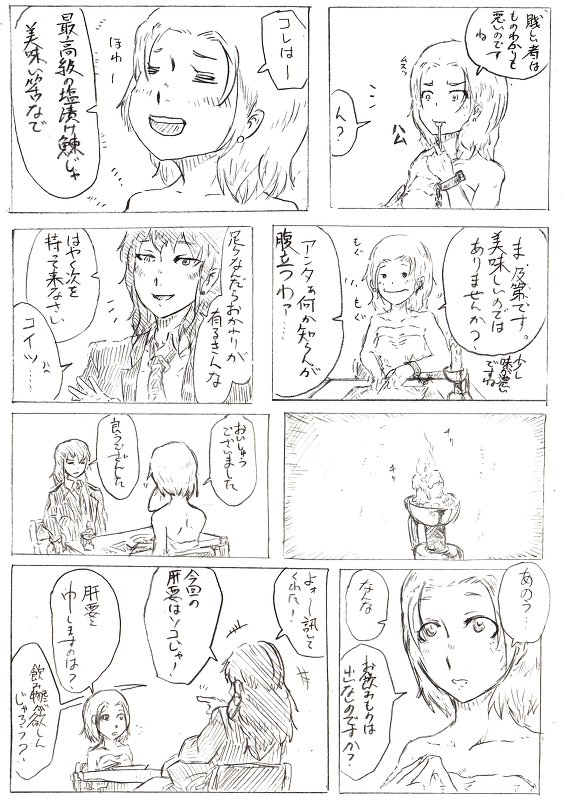 賎しい者は
ものわかりも
悪いのです
ね
ムスッ
ん?
コレはー
ほわー
最高級の塩漬け鰊じゃ
美味い筈なで
ま、及第です。
美味しいのでは
ありませんか?
少し
味が濃い
ですね
もぐ
もぐ
アンタぁ何か知らんが
腹立つわァ…
足りなたらおかわりが
有るきんな
はやく次を
持って来なさい
コイツ…
チリ
チリ
おいしゅう
ございました
良うござんした
あのう…
なんな
お飲みものは
出ないのですか?
よォー訊いて
くれた!
今回の
肝要はソコじゃ!
肝要と
申しますのは?
飲み物が欲しん
じゃろうっ?